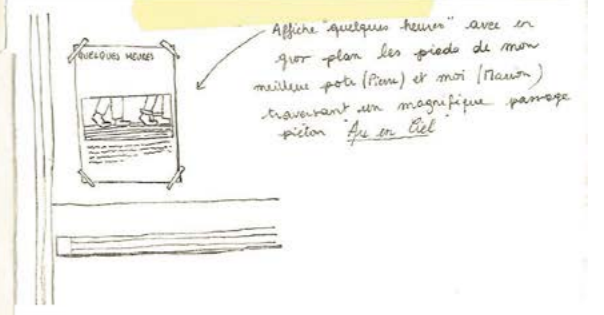 QUELQUES HEURES
Affiche "quelques heures" avec en
gros plan les pieds de mon
meilleur pote (Pierre) et moi (Marion)
traversant un magnifique passage
piéton "Arc en Ciel"